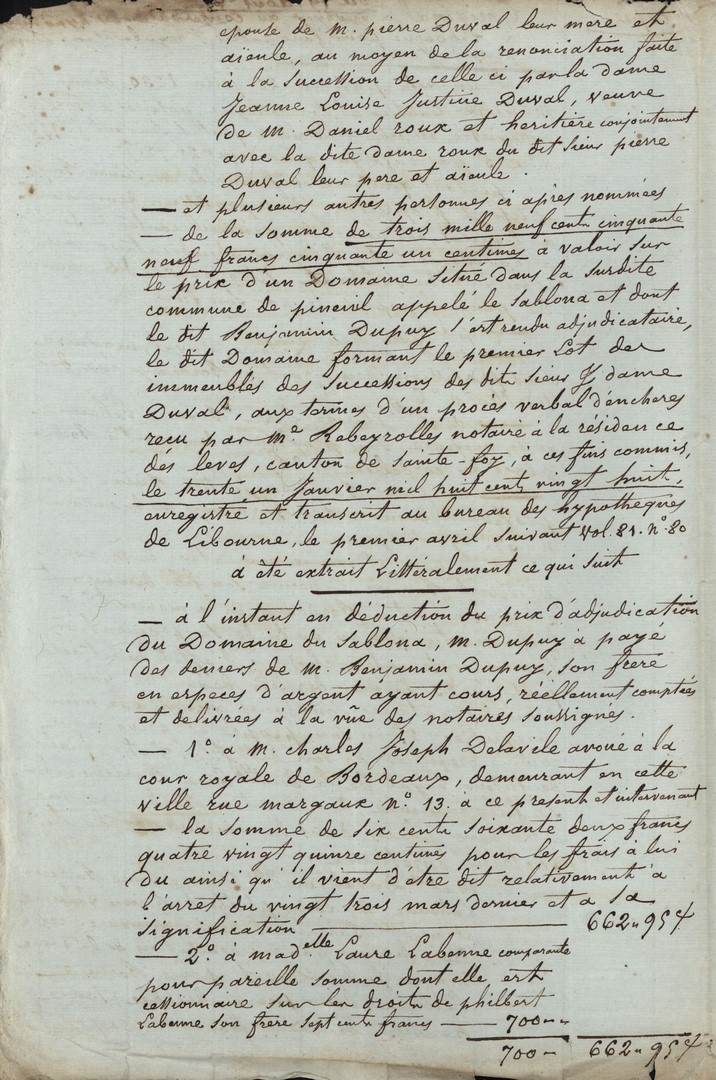 epouse de m. pierre Duval leur mere et
aïeule, au moyen de la renonciation faite
à la succession de celle ci par la dame
Jeanne Louise Justine Duval, veuve
de M. Daniel roux et heritière conjointement
avec la dite dame roux du dit sieur pierre
Duval leur pere et aïeule.
— et plusieurs autres personnes ci après nommées
— de la somme de trois mille neuf cent cinquante
neuf francs cinquante un centimes à valoir sur
le prix d'un Domaine situé dans la susdite
commune de pineuil appelé le sablona et dont
le dit Benjamin Dupuy s'est rendu adjudicataire,
le dit Domaine formant le premier Lot des
immeubles des successions des dits sieur & dame
Duval, aux termes d'un procès verbal d'encheres
reçu par Me Rabeyrolles notaire à la résidence
des leves, canton de sainte-foy, à ces fins commis,
le trente un Janvier mil huit cent vingt huit,
enregistré et transcrit au bureau des hypothèques
de Libourne, le premier avril suivant vol. 81. n° 80
à été extrait Littéralement ce qui suit
— à l'instant en déduction du prix d'adjudication
du Domaine du sablona, M. Dupuy à payé
des deniers de M. Benjamin Dupuy, son frere
en especes d'argent ayant cours, réellement comptées
et délivrées à la vüe des notaires soussignés.
— 1° à M. charles Joseph Delavile avoué à la
cour royale de Bordeaux, demeurant en cette
ville rue margaux n° 13. à ce present et intervenant
— la somme de six cent soixante deux francs
quatre vingt quinze centimes pour les frais à lui
du ainsi qu'il vient d'être dit relativement à
l'arret du vingt trois mars dernier et a sa
signification — 662 " 95
— 2° à madelle Laure Labenne comparante
pour pareille somme dont elle est
cessionnaire sur les droits de philbert
Labenne son frere sept cent francs — 700 —
700 — 662 " 95